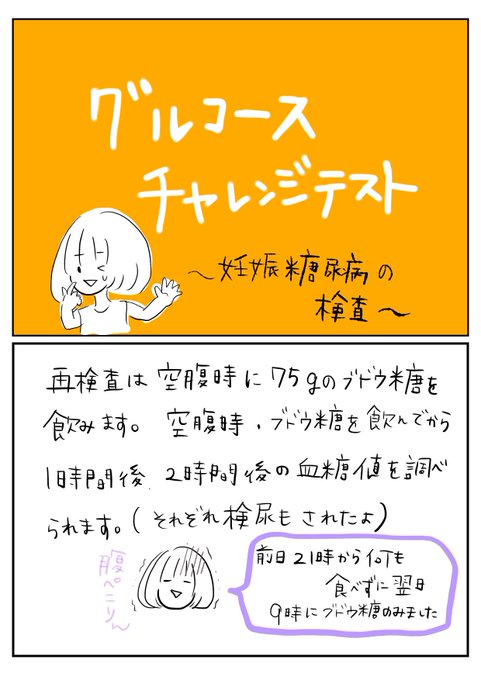 グルコース
チャレンジテスト
～妊娠糖尿病の
検査～
再検査は空腹時に75gのブドウ糖を
飲みます。空腹時、ブドウ糖を飲んでから
1時間後、2時間後の血糖値を調べ
られます。(それぞれ検尿もされたよ)
腹ペこりん
前日21時から何も
食べずに翌日
9時にブドウ糖のみました